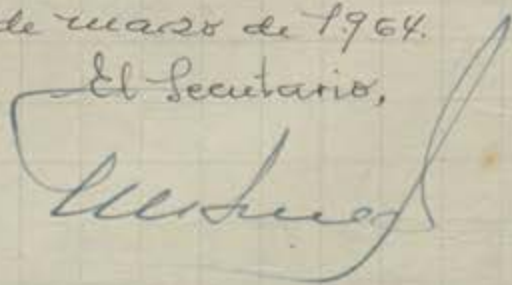 de marzo de 1.964.
El Secretario,